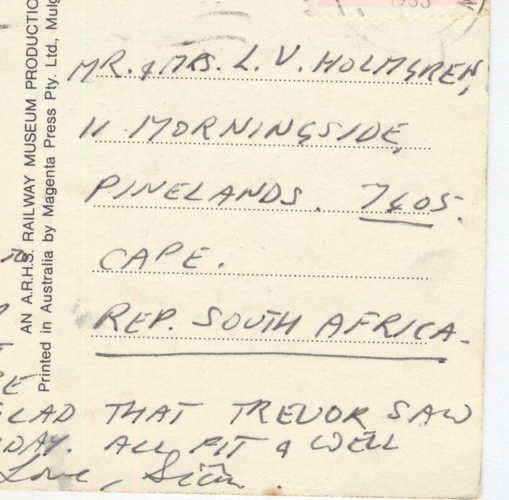 1983
MR. & MRS. L. V. HOLMGREN,
11 MORNINGSIDE,
PINELANDS. 7405.
CAPE.
REP. SOUTH AFRICA.
GLAD THAT TREVOR SAW
DAY. ALL FIT & WELL
Love,
AN A.R.H.S. RAILWAY MUSEUM PRODUCTIO
Printed in Australia by Magenta Press Pty. Ltd., Mulg